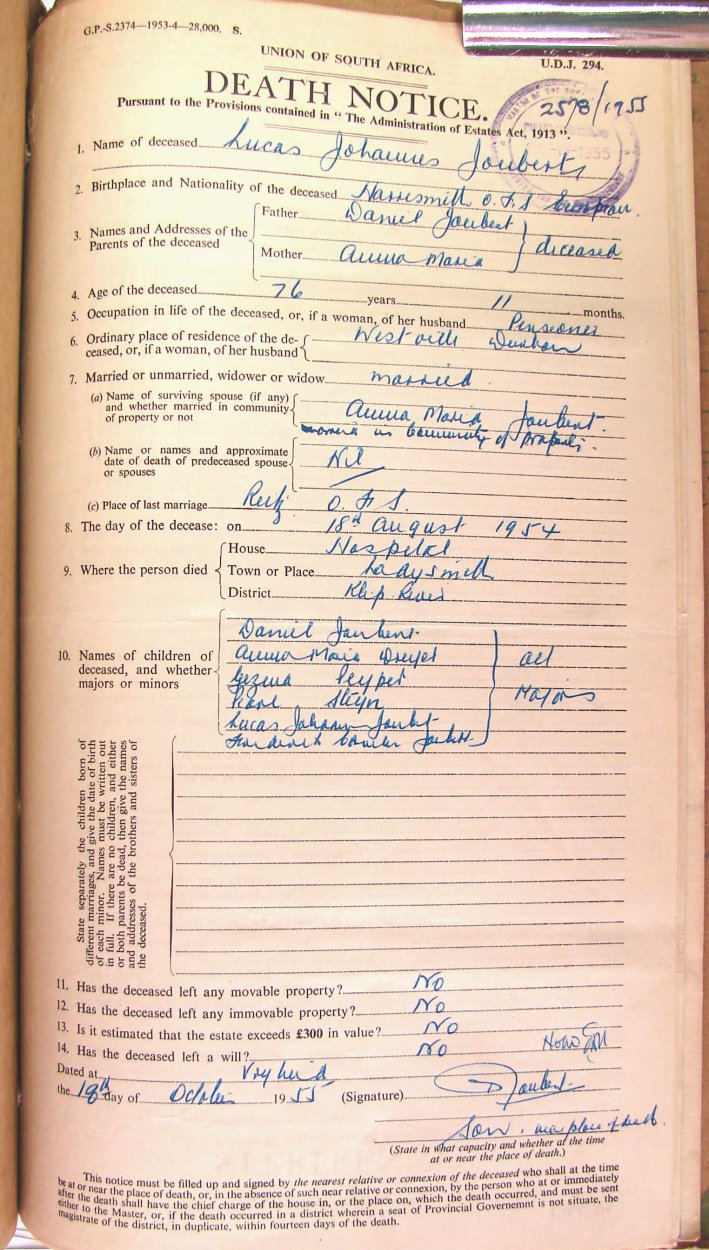 G.P.-S.2374—1953-4—28,000. S.
UNION OF SOUTH AFRICA.
U.D.J. 294.
DEATH NOTICE.
2578/1955
Pursuant to the Provisions contained in "The Administration of Estates Act, 1913".
1. Name of deceased Lucas Johannes Joubert
2. Birthplace and Nationality of the deceased Harrismith O.F.S European.
3. Names and Addresses of the Parents of the deceased
Father Daniel Joubert
Mother Anna Maria
deceased
4. Age of the deceased 76 years 11 months.
5. Occupation in life of the deceased, or, if a woman, of her husband Pensioner
6. Ordinary place of residence of the de-
ceased, or, if a woman, of her husband
Westville Durban
7. Married or unmarried, widower or widow married
(a) Name of surviving spouse (if any)
and whether married in community
of property or not
Anna Maria Joubert.
in Community of Property.
(b) Name or names and approximate
date of death of predeceased spouse
or spouses
Nil
(c) Place of last marriage Reitz O.F.S.
8. The day of the decease: on 18th August 1954
9. Where the person died
House Hospital
Town or Place Ladysmith
District Klip River
10. Names of children of
deceased, and whether
majors or minors
Daniel Joubert.
Anna Maria Dreyer
Peyper
Steyn
Lucas Johannes Joubert
Joubert.
all
Majors
State separately the children born of
different marriages, and give the date of birth
of each minor. Names must be written out
in full. If there are no children, and either
or both parents be dead, then give the names
and addresses of the brothers and sisters of
the deceased.
11. Has the deceased left any movable property? No
12. Has the deceased left any immovable property? No
13. Is it estimated that the estate exceeds £300 in value? No
14. Has the deceased left a will? No
Dated at Vryheid
the 18th day of October 1955 (Signature) D Joubert
Son. near place of death.
(State in what capacity and whether at the time
at or near the place of death.)
This notice must be filled up and signed by the nearest relative or connexion of the deceased who shall at the time
be at or near the place of death, or, in the absence of such near relative or connexion, by the person who at or immediately
after the death shall have the chief charge of the house in, or the place on, which the death occurred, and must be sent
either to the Master, or, if the death occurred in a district wherein a seat of Provincial Governemnt is not situate, the
magistrate of the district, in duplicate, within fourteen days of the death.